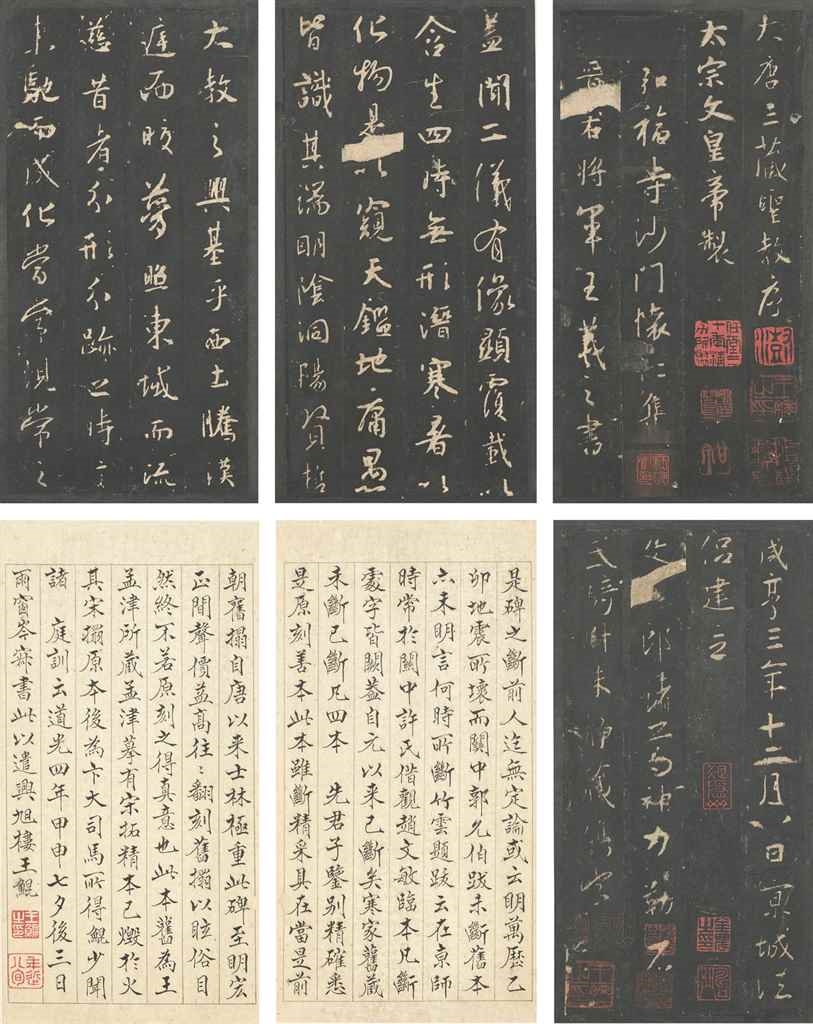 大唐三藏聖教序
太宗文皇帝製
弘福寺沙門懷仁集
晉右將軍王羲之書
蓋聞二儀有像顯覆載以
含生四時無形潛寒暑以
化物是以窺天鑑地庸愚
皆識其端明陰洞陽賢哲
大教之興基乎西土騰漢
庭而皎夢照東域而流
慈昔者分形分跡之時言
未馳而成化當常現常之
咸亨三年十二月八日京城法
侶建立
文郎諸葛神力勒石
武騎尉朱靜藏鐫字
是碑之斷前人迄無定論或云明萬曆乙
卯地震所壞而關中郭允伯跋未斷舊本
亦未明言何時所斷竹雲題跋云在京師
時常於關中許氏借觀趙文敏臨本凡斷
處字皆闕蓋自元以來已斷矣寒家舊藏
未斷已斷凡四本 先君子鑒別精確悉
是原刻善本此本雖斷精采具在當是前
朝舊搨自唐以來士林極重此碑至明宏
正間聲價益高往〻翻刻舊搨以眩俗目
然終不若原刻之得真意也此本舊為王
孟津所藏孟津摹有宋拓精本已燬於火
其宋搨原本後為卞大司馬所得鯤少聞
諸 庭訓云道光四年甲申七夕後三日
雨窗岑寂書此以遣興旭樓王鯤